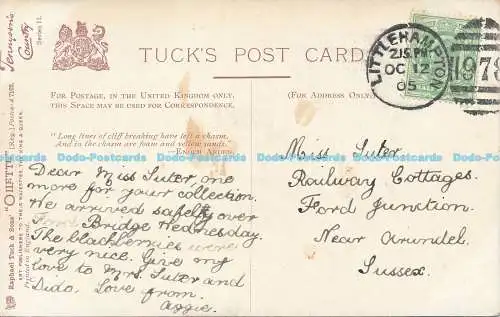 Tennyson's
County
Series II.
TUCK'S POST CARD
LITTLEHAMPTON
2.15 PM
OC 12
05
FOR POSTAGE, IN THE UNITED KINGDOM ONLY,
THIS SPACE MAY BE USED FOR CORRESPONDENCE.
(FOR ADDRESS ONLY.)
"Long lines of cliff breaking have left a chasm,
And in the chasm are foam and yellow sands."
—ENOCH ARDEN.
Dear Miss Suter, one
more for your collection.
We arrived safely over
Ford Bridge Wednesday.
The blackberries were
very nice. Give my
love to Mrs. Suter and
Dido. Love from
Aggie.
Miss Suter
Railway Cottages.
Ford Junction.
Near Arundel.
Sussex.
Raphael Tuck & Sons' "OILETTE" [Regd.] Postcard 7165.
ART PUBLISHERS TO THEIR MAJESTIES THE KING & QUEEN.
Printed in England.
Dodo-Postcards Dodo-Postcards Dodo-Postcards Dodo-Postcards Dodo-Postcards Dodo-Postcards